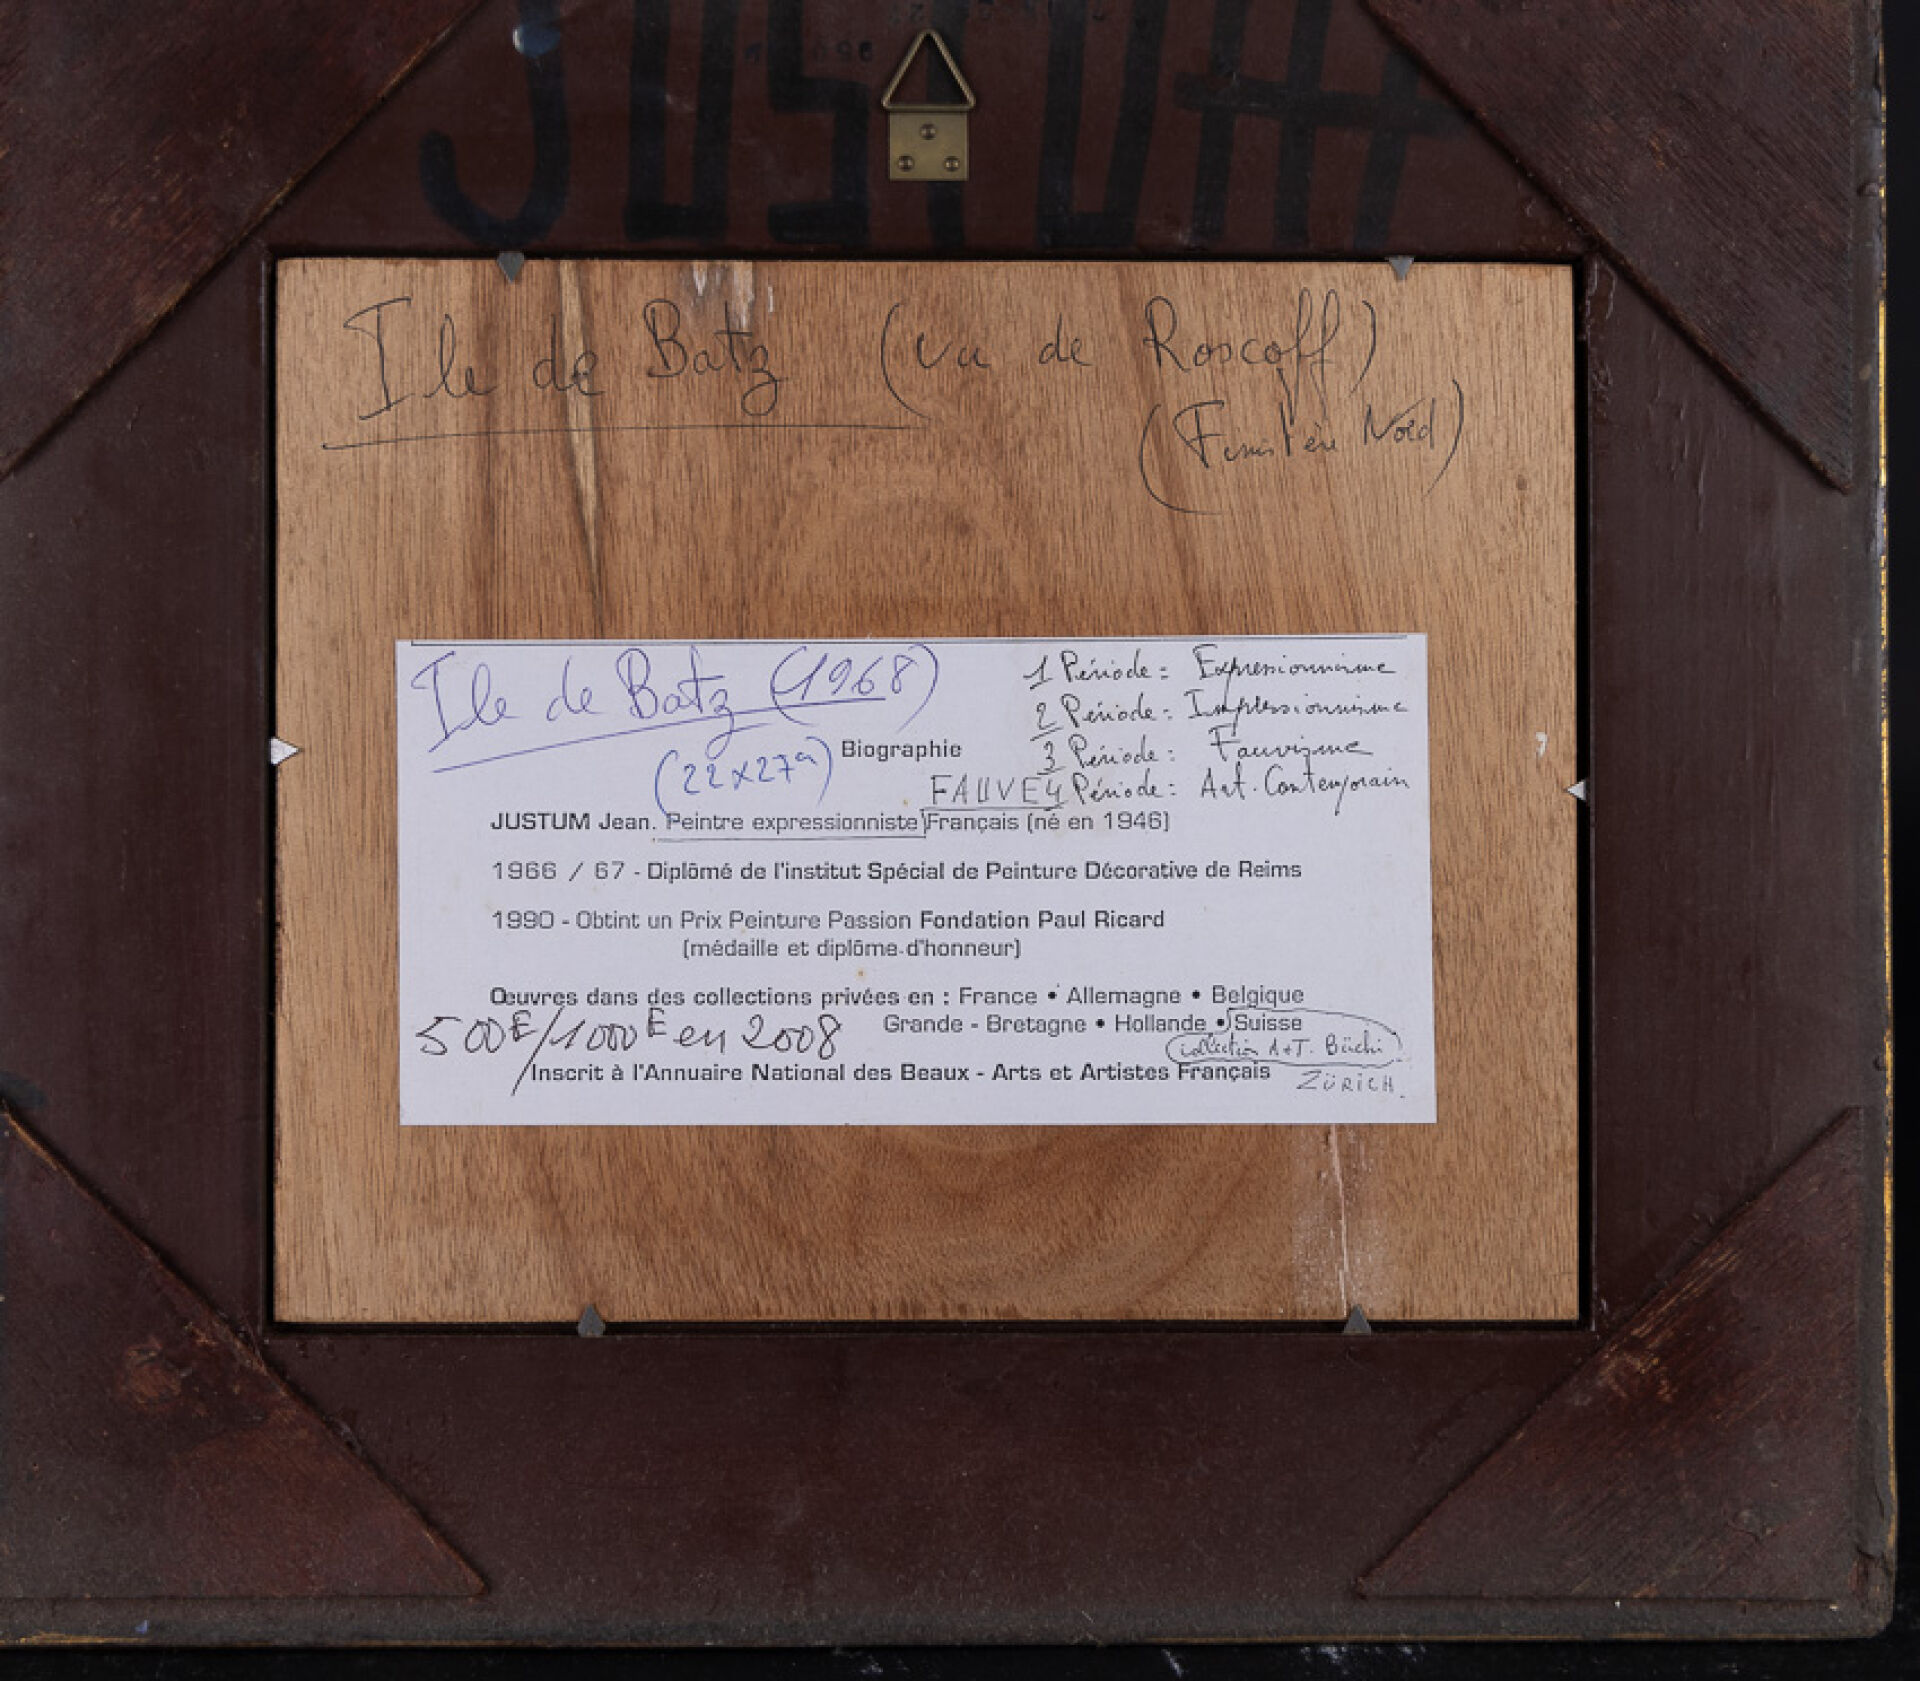 JUSTUM
Ile de Batz (vu de Roscoff)
(Finistère Nord)
Ile de Batz (1968)
(22x27cm)
1 Période : Expressionnisme
2 Période : Impressionnisme
3 Période : Fauvisme
4 Période : Art. Contemporain
Biographie
FAUVE
JUSTUM Jean. Peintre expressionniste Français (né en 1946)
1966 / 67 - Diplômé de l'institut Spécial de Peinture Décorative de Reims
1990 - Obtint un Prix Peinture Passion Fondation Paul Ricard
(médaille et diplôme d'honneur)
Œuvres dans des collections privées en : France • Allemagne • Belgique
Grande - Bretagne • Hollande • Suisse
500E/1000E en 2008
collection A+T. Büchi
ZÜRICH.
Inscrit à l'Annuaire National des Beaux - Arts et Artistes Français